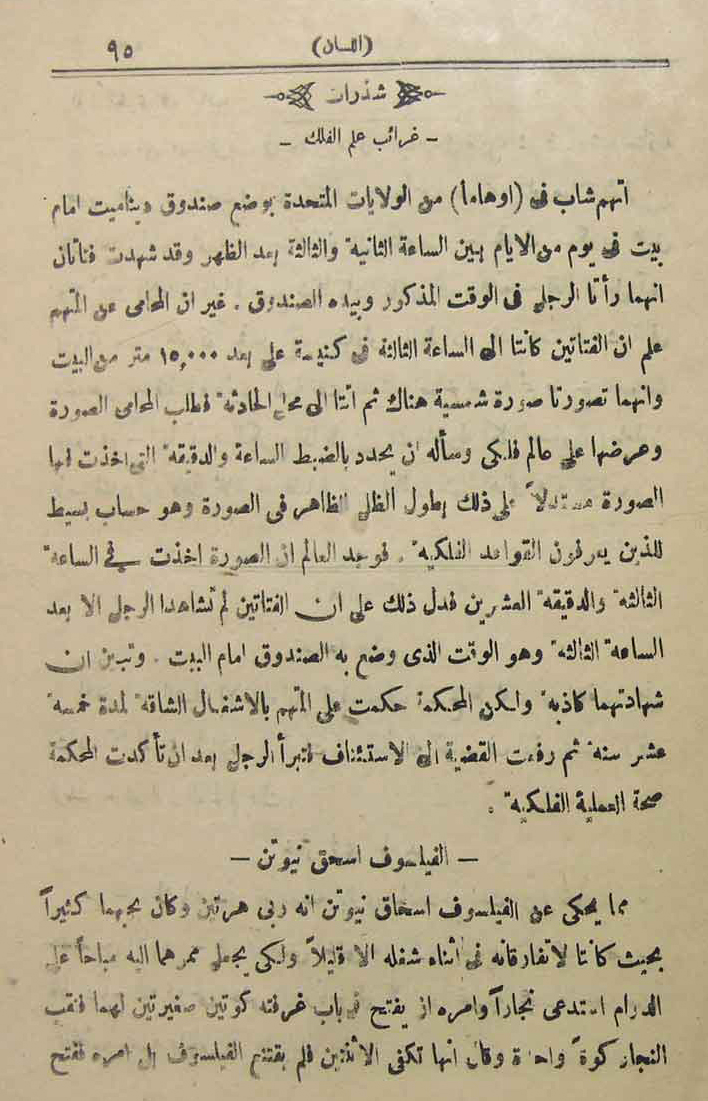 ٩٥
(اللسان)
شذرات
- غرائب علم الفلك -
اتهم شاب فى (اوهاما) من الولايات المتحدة بوضع صندوق ديناميت امام
بيت فى يوم من الايام بين الساعة الثانية والثالثة بعد الظهر وقد شهدت فتاتان
انهما رأتا الرجل فى الوقت المذكور وبيده الصندوق . غير ان المحامى عن المتهم
علم ان الفتاتين كانتا الى الساعة الثالثة فى كنيسة على بعد ١٥,٠٠٠ متر من البيت
وانهما تصورتا صورة شمسية هناك ثم اتتا الى محل الحادثة فطلب المحامى الصورة
وعرضها على عالم فلكى وسأله ان يحدد بالضبط الساعة والدقيقة التى اخذت فيها
الصورة مستدلاً على ذلك بطول الظل الظاهر فى الصورة وهو حساب بسيط
للذين يعرفون القواعد الفلكية . فوجد العالم ان الصورة اخذت في الساعة
الثالثة والدقيقة العشرين فدل ذلك على ان الفتاتين لم تشاهدا الرجل الا بعد
الساعة الثالثة وهو الوقت الذى وضع به الصندوق امام البيت . وتبين ان
شهادتهما كاذبة ولكن المحكمة حكمت على المتهم بالاشغال الشاقة لمدة خمسة
عشر سنة ثم رفعت القضية الى الاستئناف فتبرأ الرجل بعد ان تأكدت المحكمة
صحة العملية الفلكية .
- الفيلسوف اسحق نيوتن -
مما يحكى عن الفيلسوف اسحاق نيوتن انه ربى هرتين وكان يحبهما كثيراً
بحيث كانتا لا تفارقانه فى اثناء شغله الا قليلاً ولكى يجعل ممرهما اليه مباحاً على
الدوام استدعى نجاراً وامره ان يفتح فى باب غرفته كوتين صغيرتين لهما فنقب
النجار كوة واحدة وقال انها تكفى الاثنتين فلم يقتنع الفيلسوف بل امره ففتح